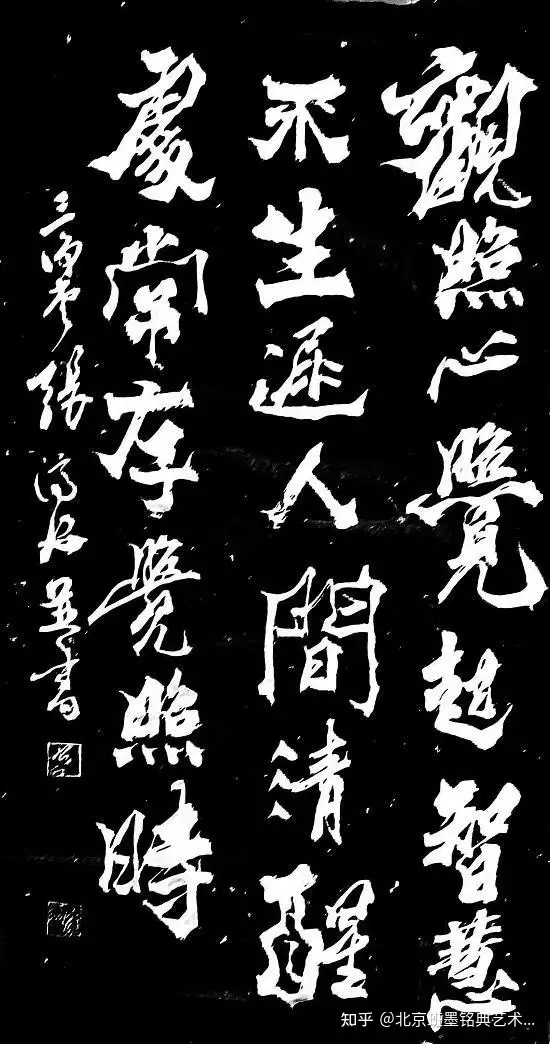 觀照心覺起智慧
不生遲人間清醒
處常存覺照時
張 並書
知乎 @北京墨铭典艺术...